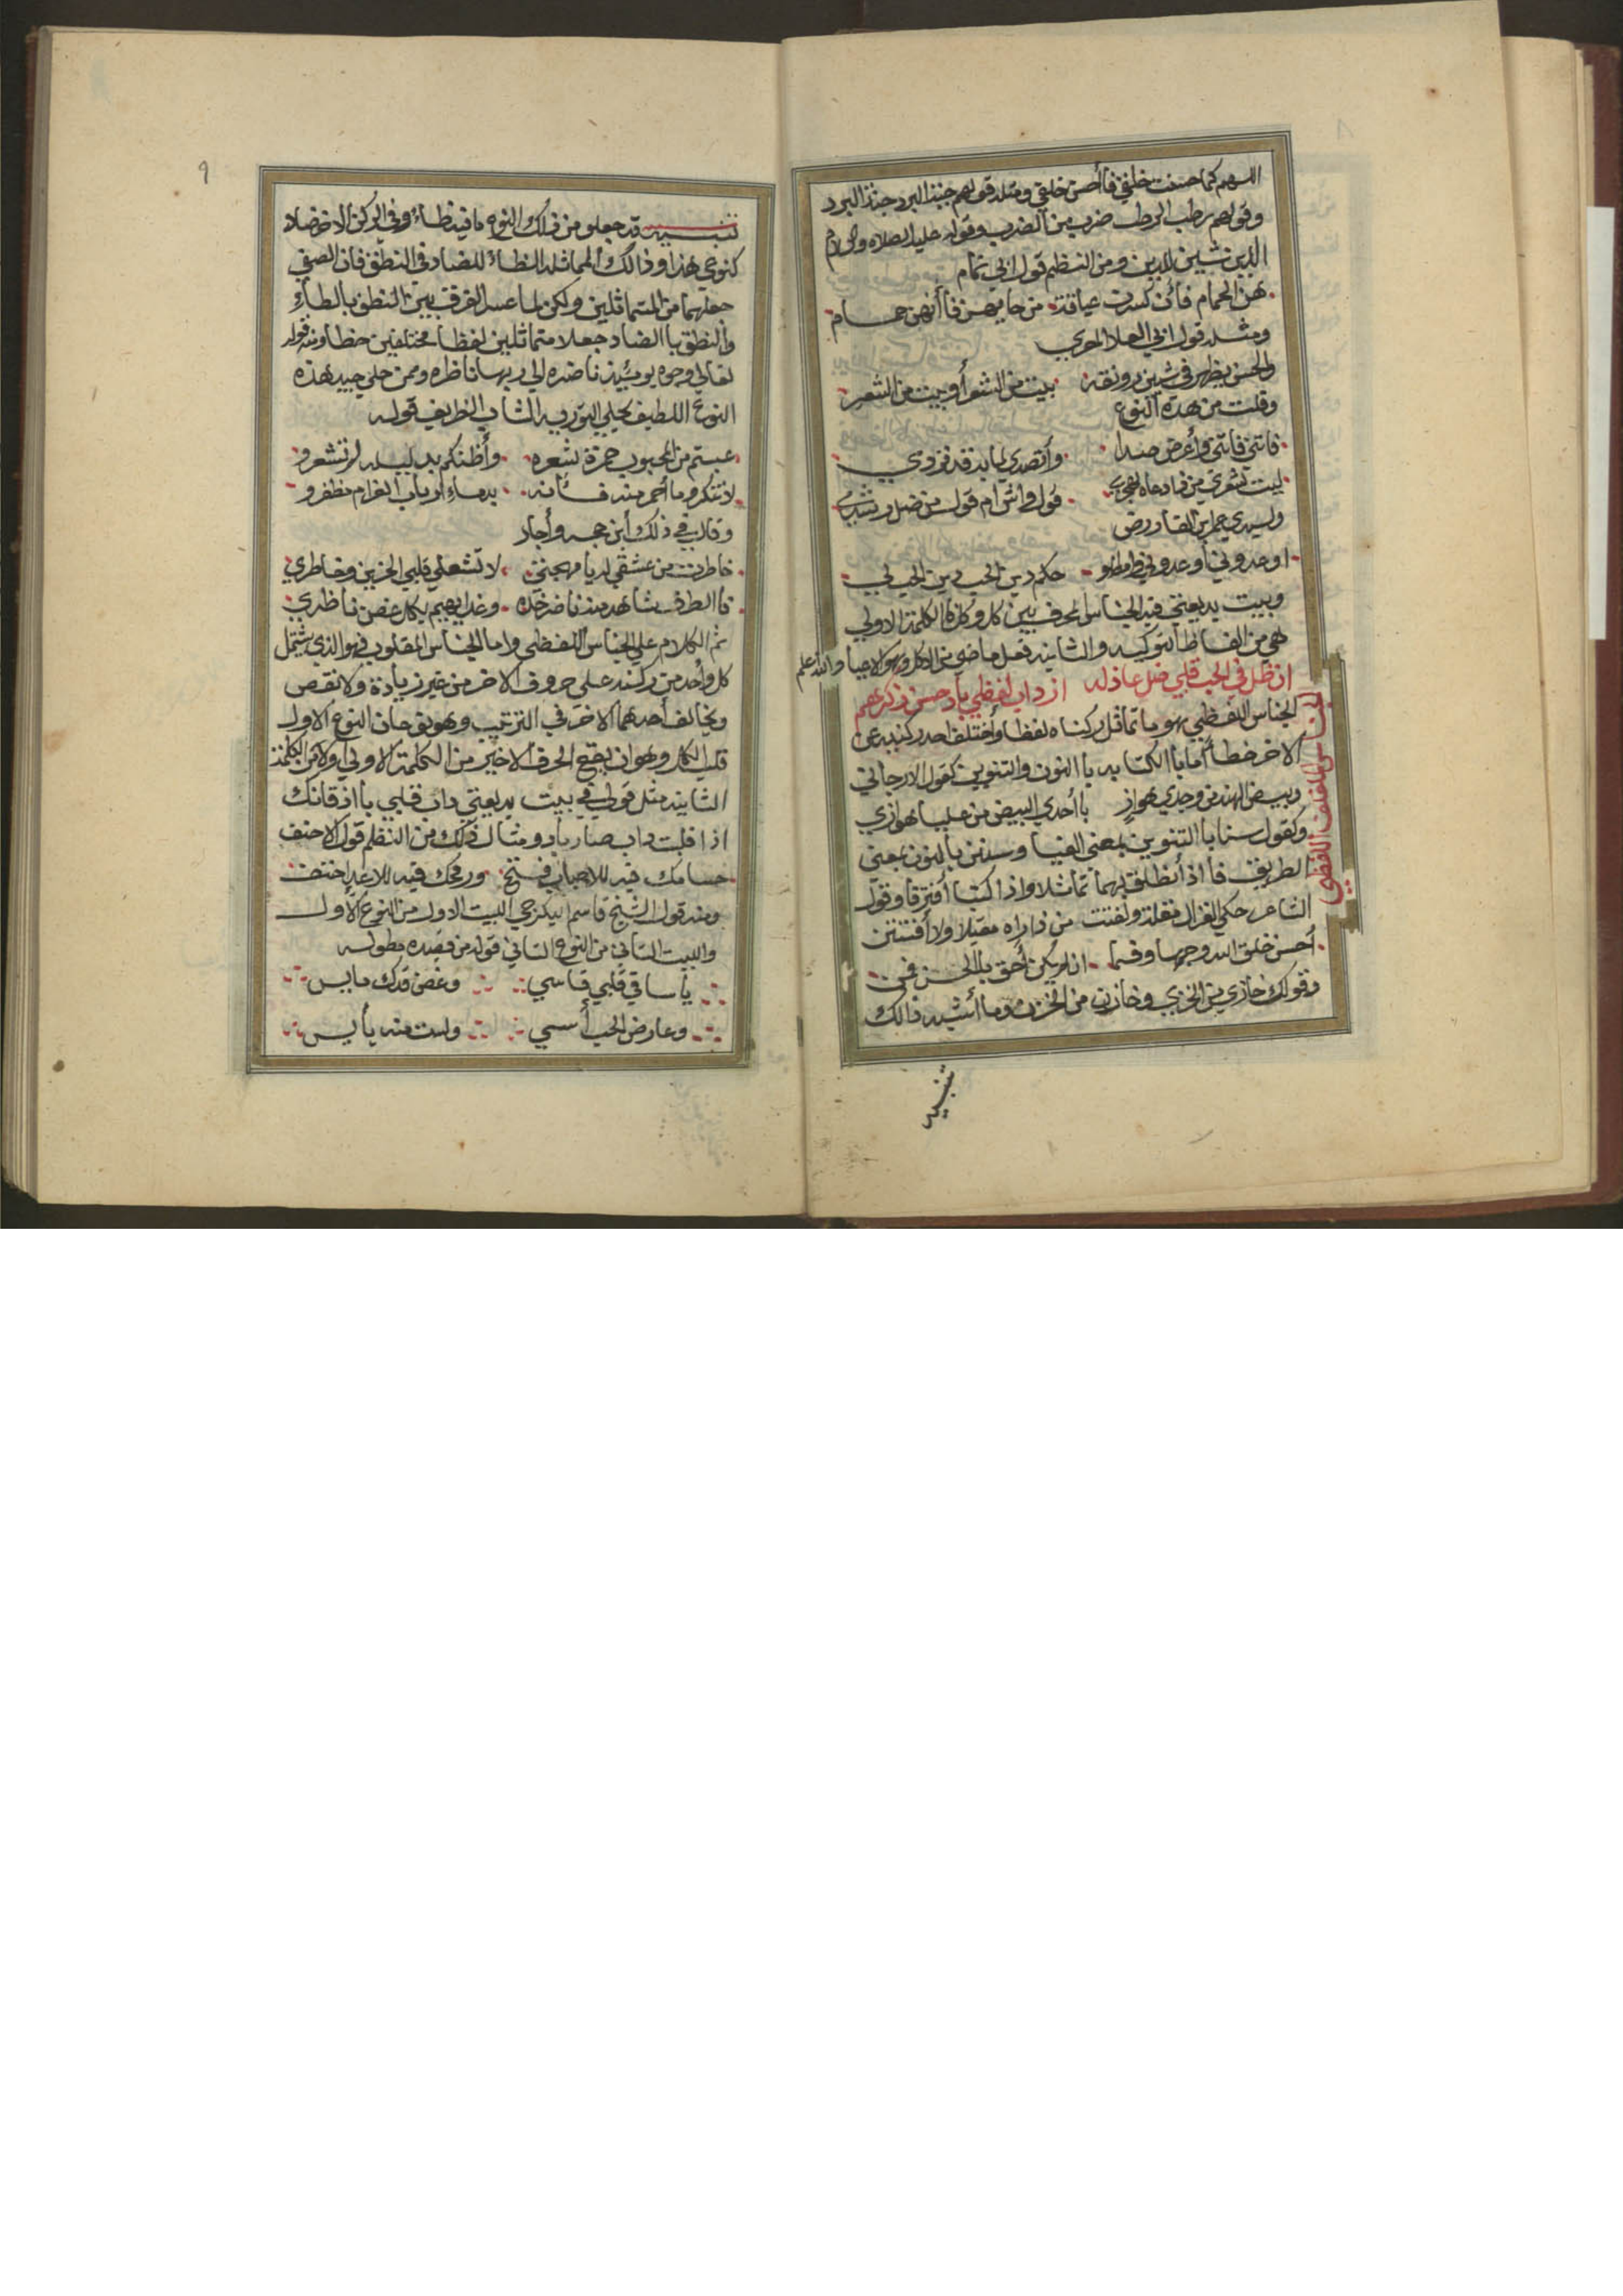 اللهم كما حسنت خلقي فأحسن خلقي ومثله قولهم جبة البرد جنة البرد
وقولهم رطب الرطب ضرب من الضرب وقوله عليه الصلاه والسلام
الدين شين للدين ومن النظم قول ابي تمام
هن الحمام فائن كسرت عيافة من حايهن فاأنهن حمام
ومثله قول ابي العلا المعري
والحسن يظهر في شيين رونقه بيت من الشعر أو بيت من الشعر
وقلت من هذه النوع
فاتني فاتني وأعرض صدا وأتصدي لما به قد
ليت شعري من
ولسيدي عمر بن الفارض
اوعدوني أو عدوني وامطلو حكم دين الحب دين الحب لي
وبيت بديعتي فيه الجناس المحرف بين
هي من الفاظ التوكيد والثانيه فعل ماضي من والله أعلم
ان ظل في الحب قلبي ضل عاذله از داب لفظي بأدحسن ذكرهم
الجناس اللفظي
الجناس اللفظي هو ما تماثل ركناه لفظا وأختلف احد ركنيه عن
الاخر خطا أما باالكتابه باالنون والتنوين كقول الارجاني
وبيض الهند من وجدي هواز باأحدي البيض من عليا هوازن
وكقول سنا باالتنوين بمعني الضيا وسنن بالنون بمعني
الطريق فأاذ أنطلق بهما تماثلا واذا كتبا أفترقا وقول
الشاعر حكي الغزال مقلة ولفتت من ذاراه مقبلا ولا أفتتن
أحسن خلق الله وجها وفما ان لم يكن أحق بالحسن فمن
وقولك خازي من الخزي وخازن من الخزن وما أشبه ذالك
تنبيه
٩
تنبيه قد جعلو من ذلك النوع ما فيه ظاء وفي الركن الاخر ضاد
كنوعي هذا وذالك المماثله الظاء للضاد في النطق فان الصفي
جعلهما من المتماثلين ولكن لما عسر الفرق بين النطق بالظاء
والنطق باالضاد جعلا متماثلين لفظا مختلفين خطا ومنه قوله
تعالي وجوه يومئيذ ناضره الي ربها ناظره وممن حلي جيد هذه
النوع اللطيف بحلي التوريه الشاب الظريف قوله
عبتم من المحبوب حمرة شعره وأظنكم بدليله لم تشعرو
لا تنكرو ما أحمر منه فائنه بدماء ارباب الغرام مظفر
وقال في ذلك أبن حجه وأجاد
خاطرت من عشقي له يا مهجتي لا تشعلي قلبي الحزين وخاطري
فاالطرف شاهد منه ناضر خده وغدا يهيم بكل غصن ناظري
تم الكلام علي الجناس اللفظي واما الجناس المقلوب فهو الذي يشتمل
كل وأحد من ركنيه علي حروف الاخر من غير زيأدة ولا نقص
ويخالف أحدهما الاخر في الترتيب وهو نوعان النوع الاول
قلب الكل وهو ان يقع الحرف الاخير من الكلمة الاولي أولا من الكلمة
الثانيه مثل قولي في بيت بديعتي داب قلبي بأ اذ فانك
اذا قلبت داب صار باد ومثال ذلك من النظم قول الاحنف
حسامك فيه للاحباب فتح ورمحك فيه للاعدا حتف
ومنه قول الشيخ قاسم البكرجي البيت الاول من النوع الأول
والبيت الثاني من النوع الثاني قوله من قصيده مطوله
يأساقي قلبي قاسي وغصن قدك مايس
وعارض الحب أسي ولست منه يأيس